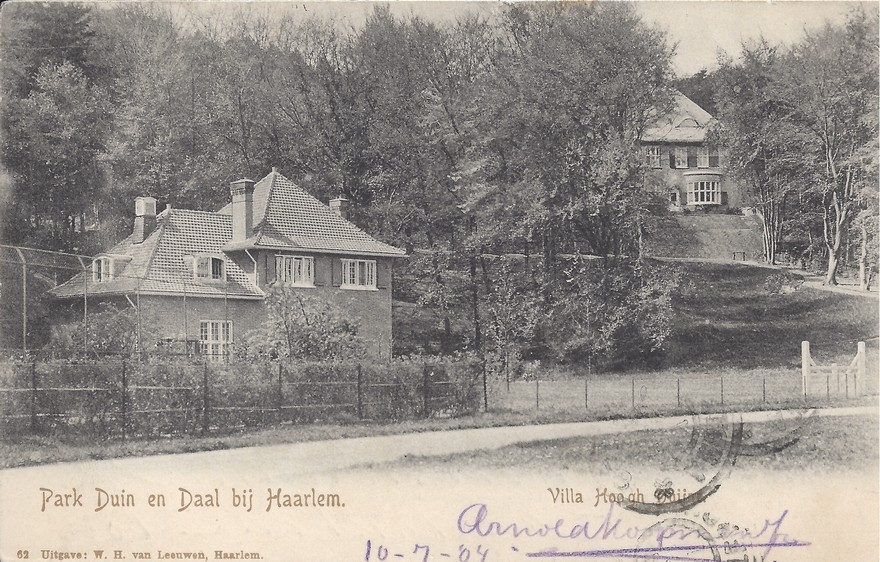 Park Duin en Daal bij Haarlem.
Villa Hoogh Duijn.
Arnold Kopman
10-7-04
62 Uitgave: W. H. van Leeuwen, Haarlem.